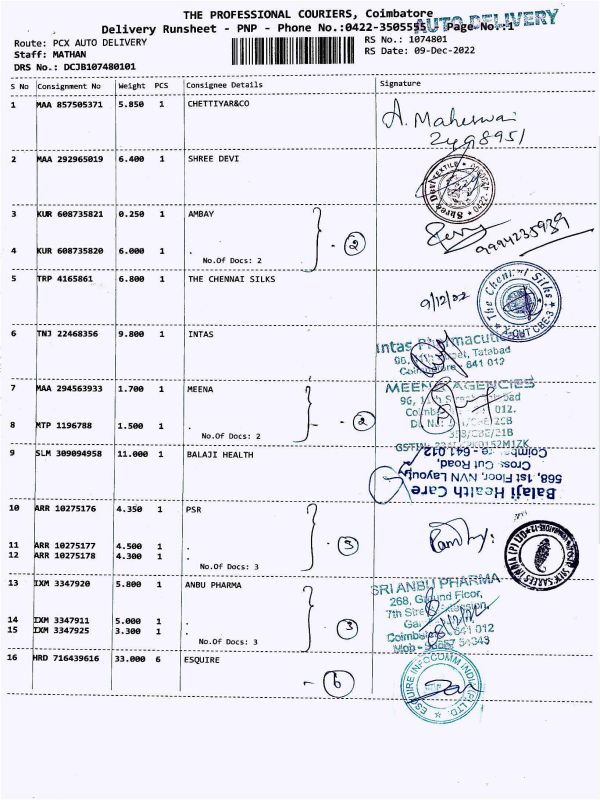 THE PROFESSIONAL COURIERS, Coimbatore
AUTO DELIVERY
Delivery Runsheet - PNP - Phone No.:0422-3505555 Page No.:1
Route: PCX AUTO DELIVERY
RS No.: 1074801
Staff: MATHAN
RS Date: 09-Dec-2022
DRS No.: DCJB107480101
S No Consignment No Weight PCS Consignee Details Signature
1 MAA 857505371 5.850 1 CHETTIYAR&CO
A. Maheswari
2 MAA 292965019 6.400 1 SHREE DEVI
Shree Devi TEXTILE
3 KUR 608735821 0.250 1 AMBAY
2
9994235939
4 KUR 608735820 6.000 1 .
No.Of Docs: 2
5 TRP 4165861 6.800 1 THE CHENNAI SILKS
9/12/22
The Chennai Silks
CBE-3
6 TNJ 22468356 9.800 1 INTAS
Intas Pharmaceuti
96, 11th Street, Tatabad
Coimbatore 641 012
7 MAA 294563933 1.700 1 MEENA
MEENA AGENCIES
96, 11th Street, Tatabad
Coimbatore 012.
2
8 MTP 1196788 1.500 1 .
No.Of Docs: 2
9 SLM 309094958 11.000 1 BALAJI HEALTH
Balaji Health Care
568, 1st Floor, NVN Layout,
Cross Cut Road,
Coimbatore - 641 012
10 ARR 10275176 4.350 1 PSR
11 ARR 10275177 4.500 1 .
3
12 ARR 10275178 4.300 1 .
No.Of Docs: 3
PSR SILK SAREES INDIA (P) LTD
13 IXM 3347920 5.800 1 ANBU PHARMA
SRI ANBU PHARMA
268, Ground Floor,
7th Street Extension,
14 IXM 3347911 5.000 1 .
15 IXM 3347925 3.300 1 .
3
Coimbatore 641 012
No.Of Docs: 3
16 HRD 716439616 33.000 6 ESQUIRE
6
ESQUIRE INFOCOMM INDIA (P) LTD.